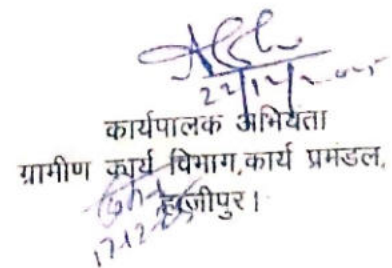 22/12/2025
कार्यपालक अभियंता
ग्रामीण कार्य विभाग,कार्य प्रमंडल,
हाजीपुर।
17.12.25